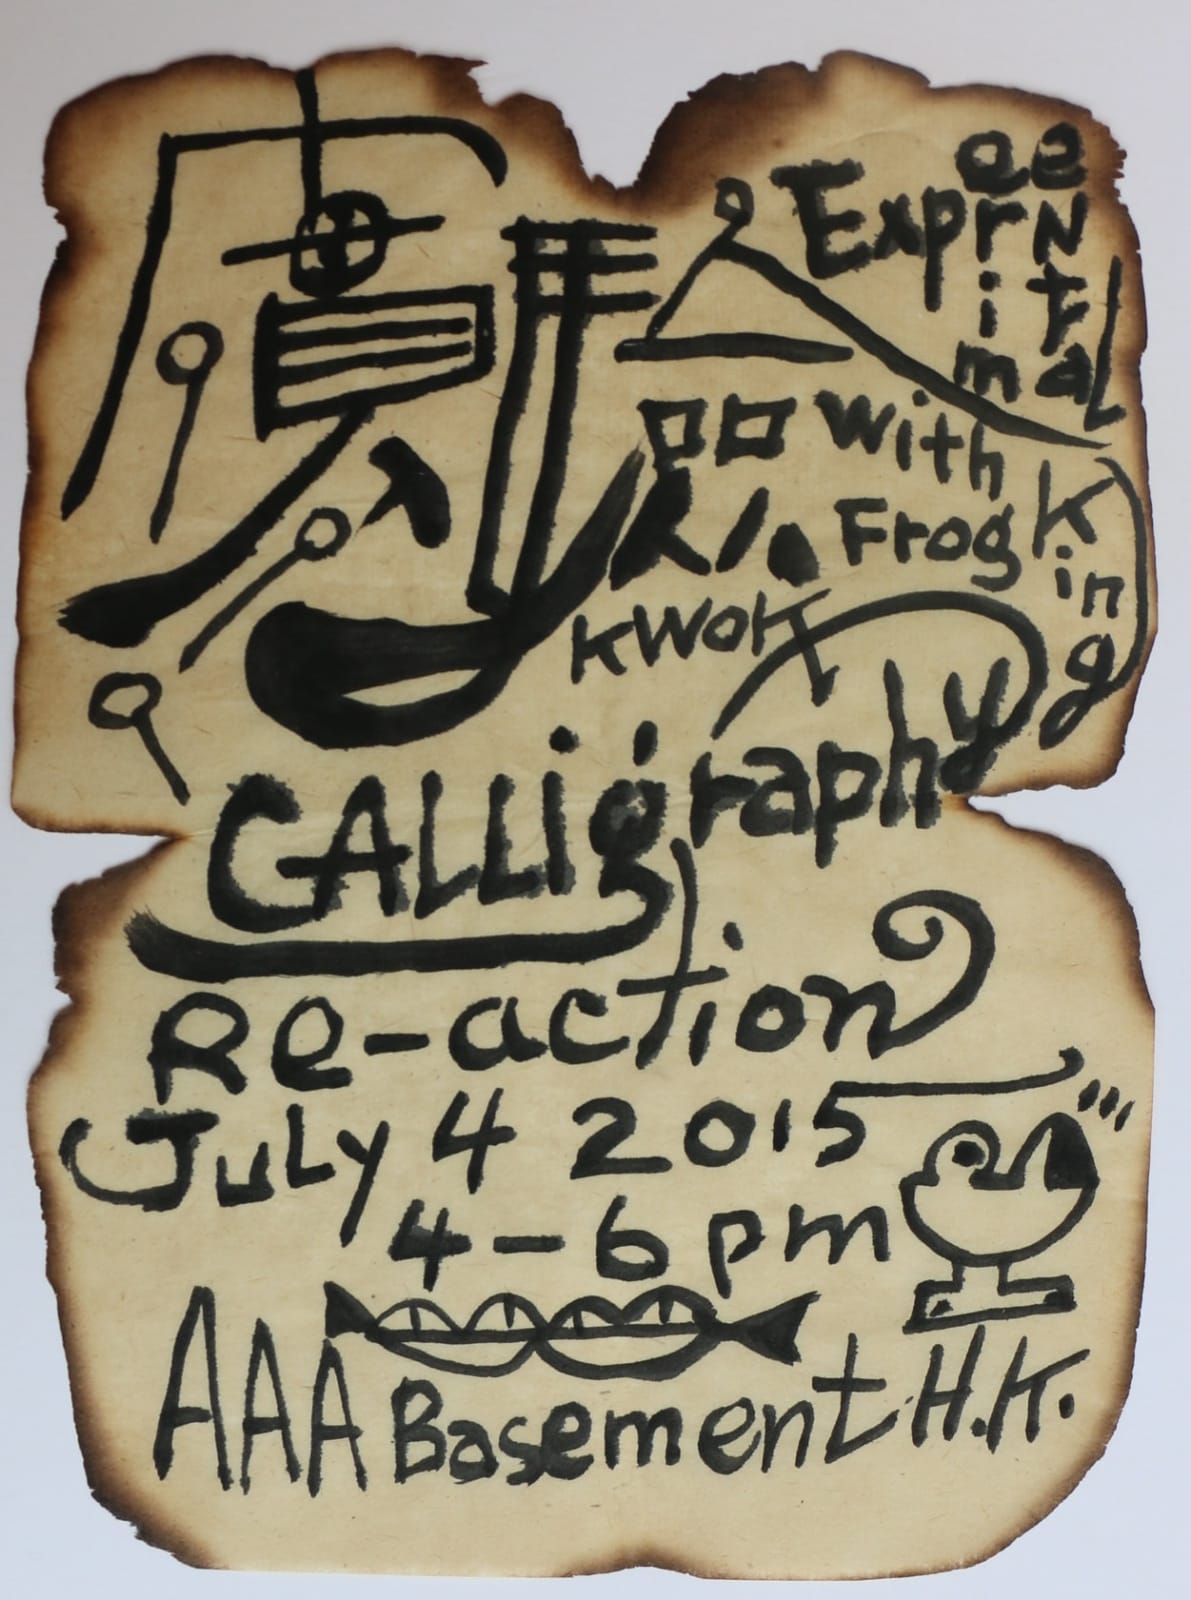 實驗
ExperimeNtal
with
Frog King
KWOK
CALLigraphy
Re-action
JuLy 4 2015
4-6pm
AAA Basement H.K.